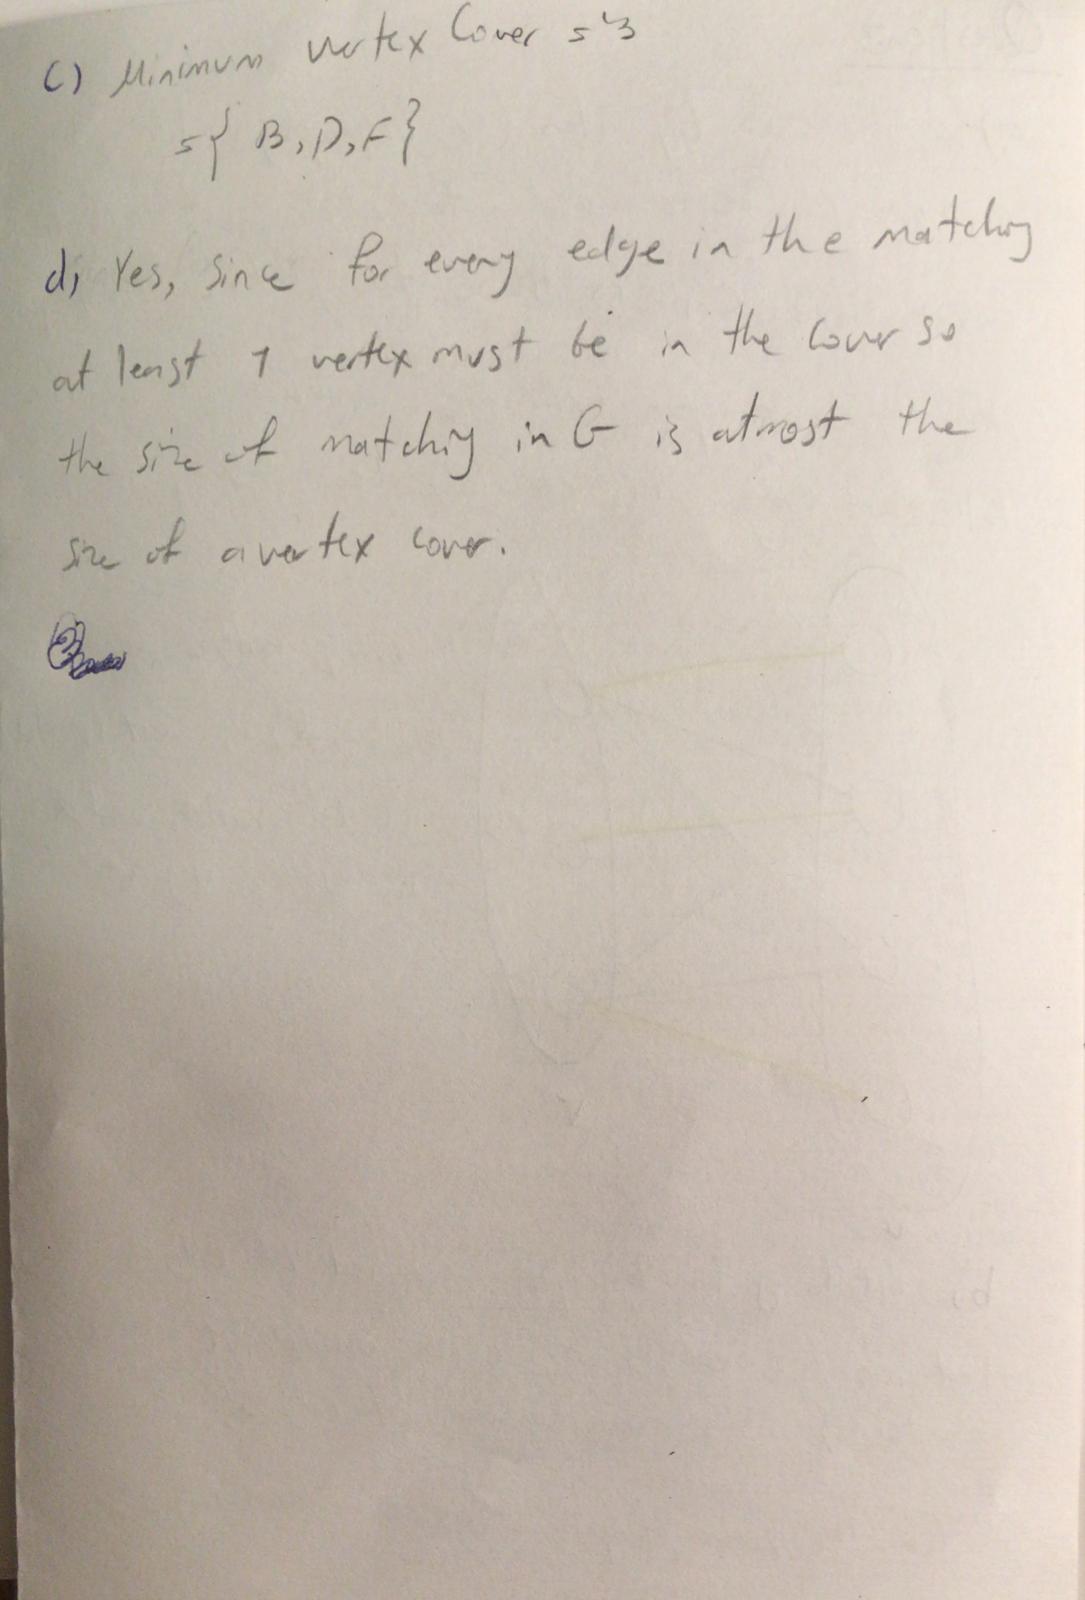 c) Minimum vertex Cover = 3
= { B, D, F }
d, Yes, since for every edge in the matching
at least 1 vertex must be in the cover so
the size of matching in G is atmost the
size of a vertex cover.